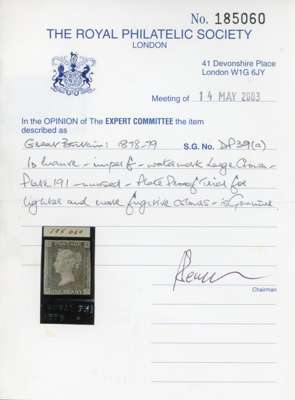 No. 185060
THE ROYAL PHILATELIC SOCIETY
LONDON
41 Devonshire Place
London W1G 6JY
Meeting of 14 MAY 2003
In the OPINION of The EXPERT COMMITTEE the item
described as
Great Britain: 1878-79 S.G. No. DP39(a)
1d - imperf - watermark Large Crown -
Plate 191 - unused - Plate Proof Trial for
lighter and more fugitive colours - is genuine
185060
POSTAGE
ONE PENNY
ROYAL PHI
Chairman